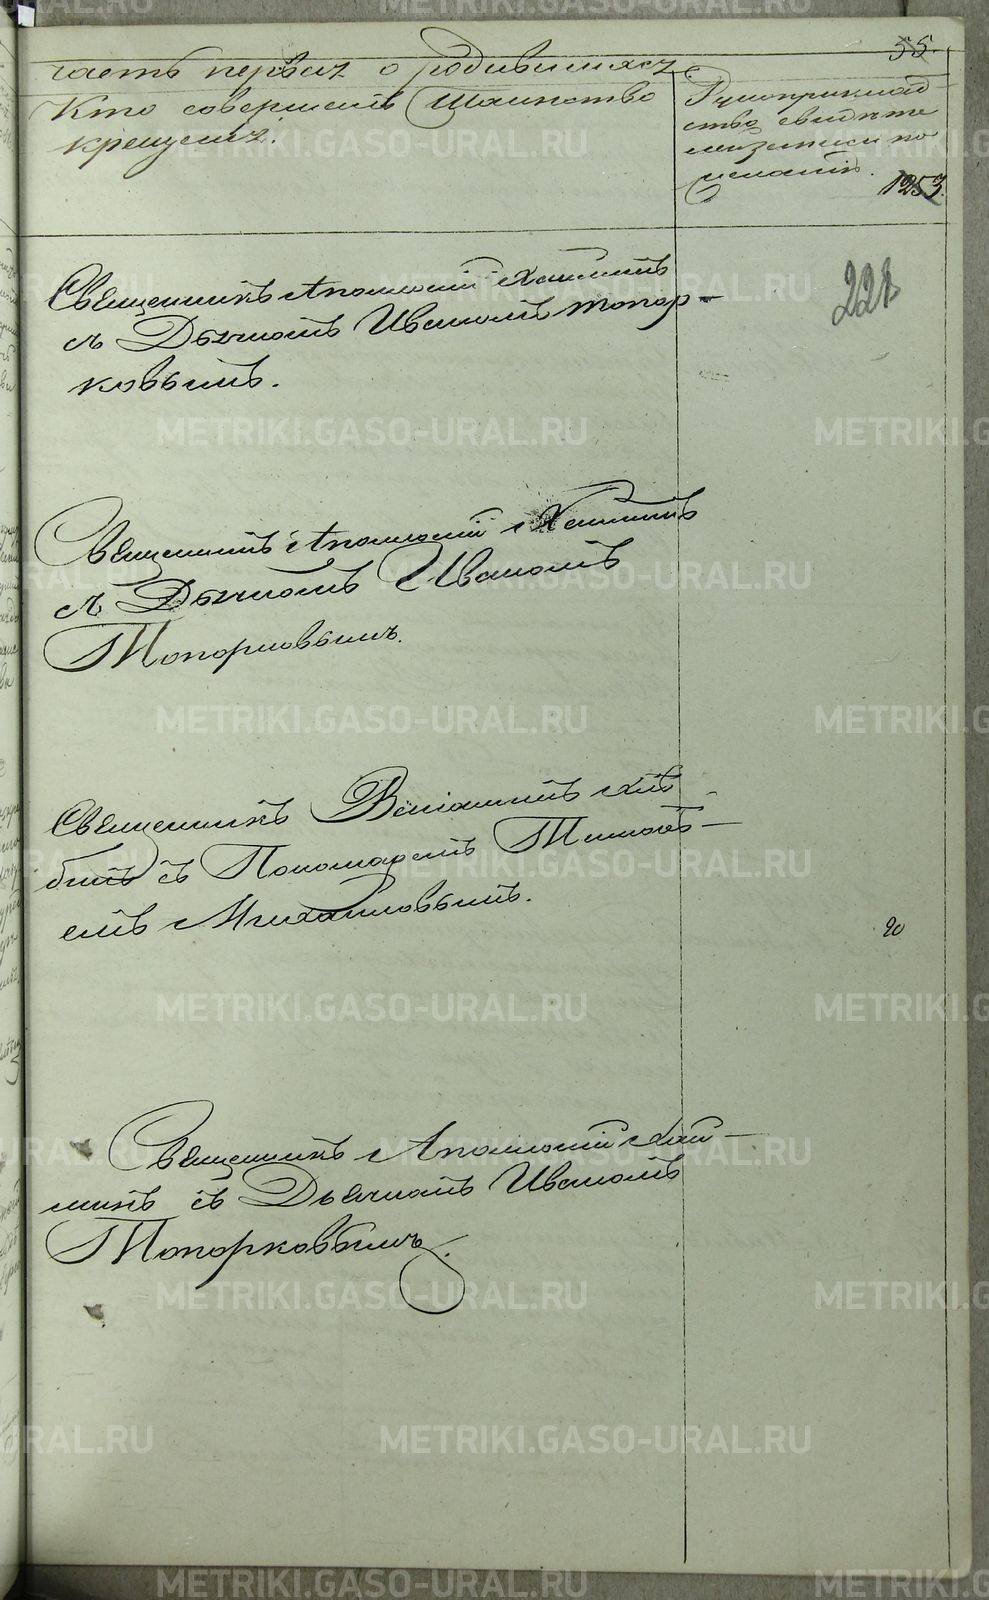 55.
часть первая о родившихся
Кто совершалъ Таинство
крещенія.
Рукоприклад
ство свидѣте
лей записи по
желанію.
1253.
228
Священникъ Аполлоній
съ Дьячкомъ Иваномъ Топор-
ковымъ.
Священникъ Аполлоній
съ Дьячкомъ Иваномъ
Топорковымъ.
Священникъ Веніаминъ Хлѣ
бинъ съ Пономаремъ Тимоѳе-
емъ Михайловымъ.
20
Священникъ Аполлоній
съ Дьячкомъ Иваномъ
Топорковымъ.
METRIKI.GASO-URAL.RU